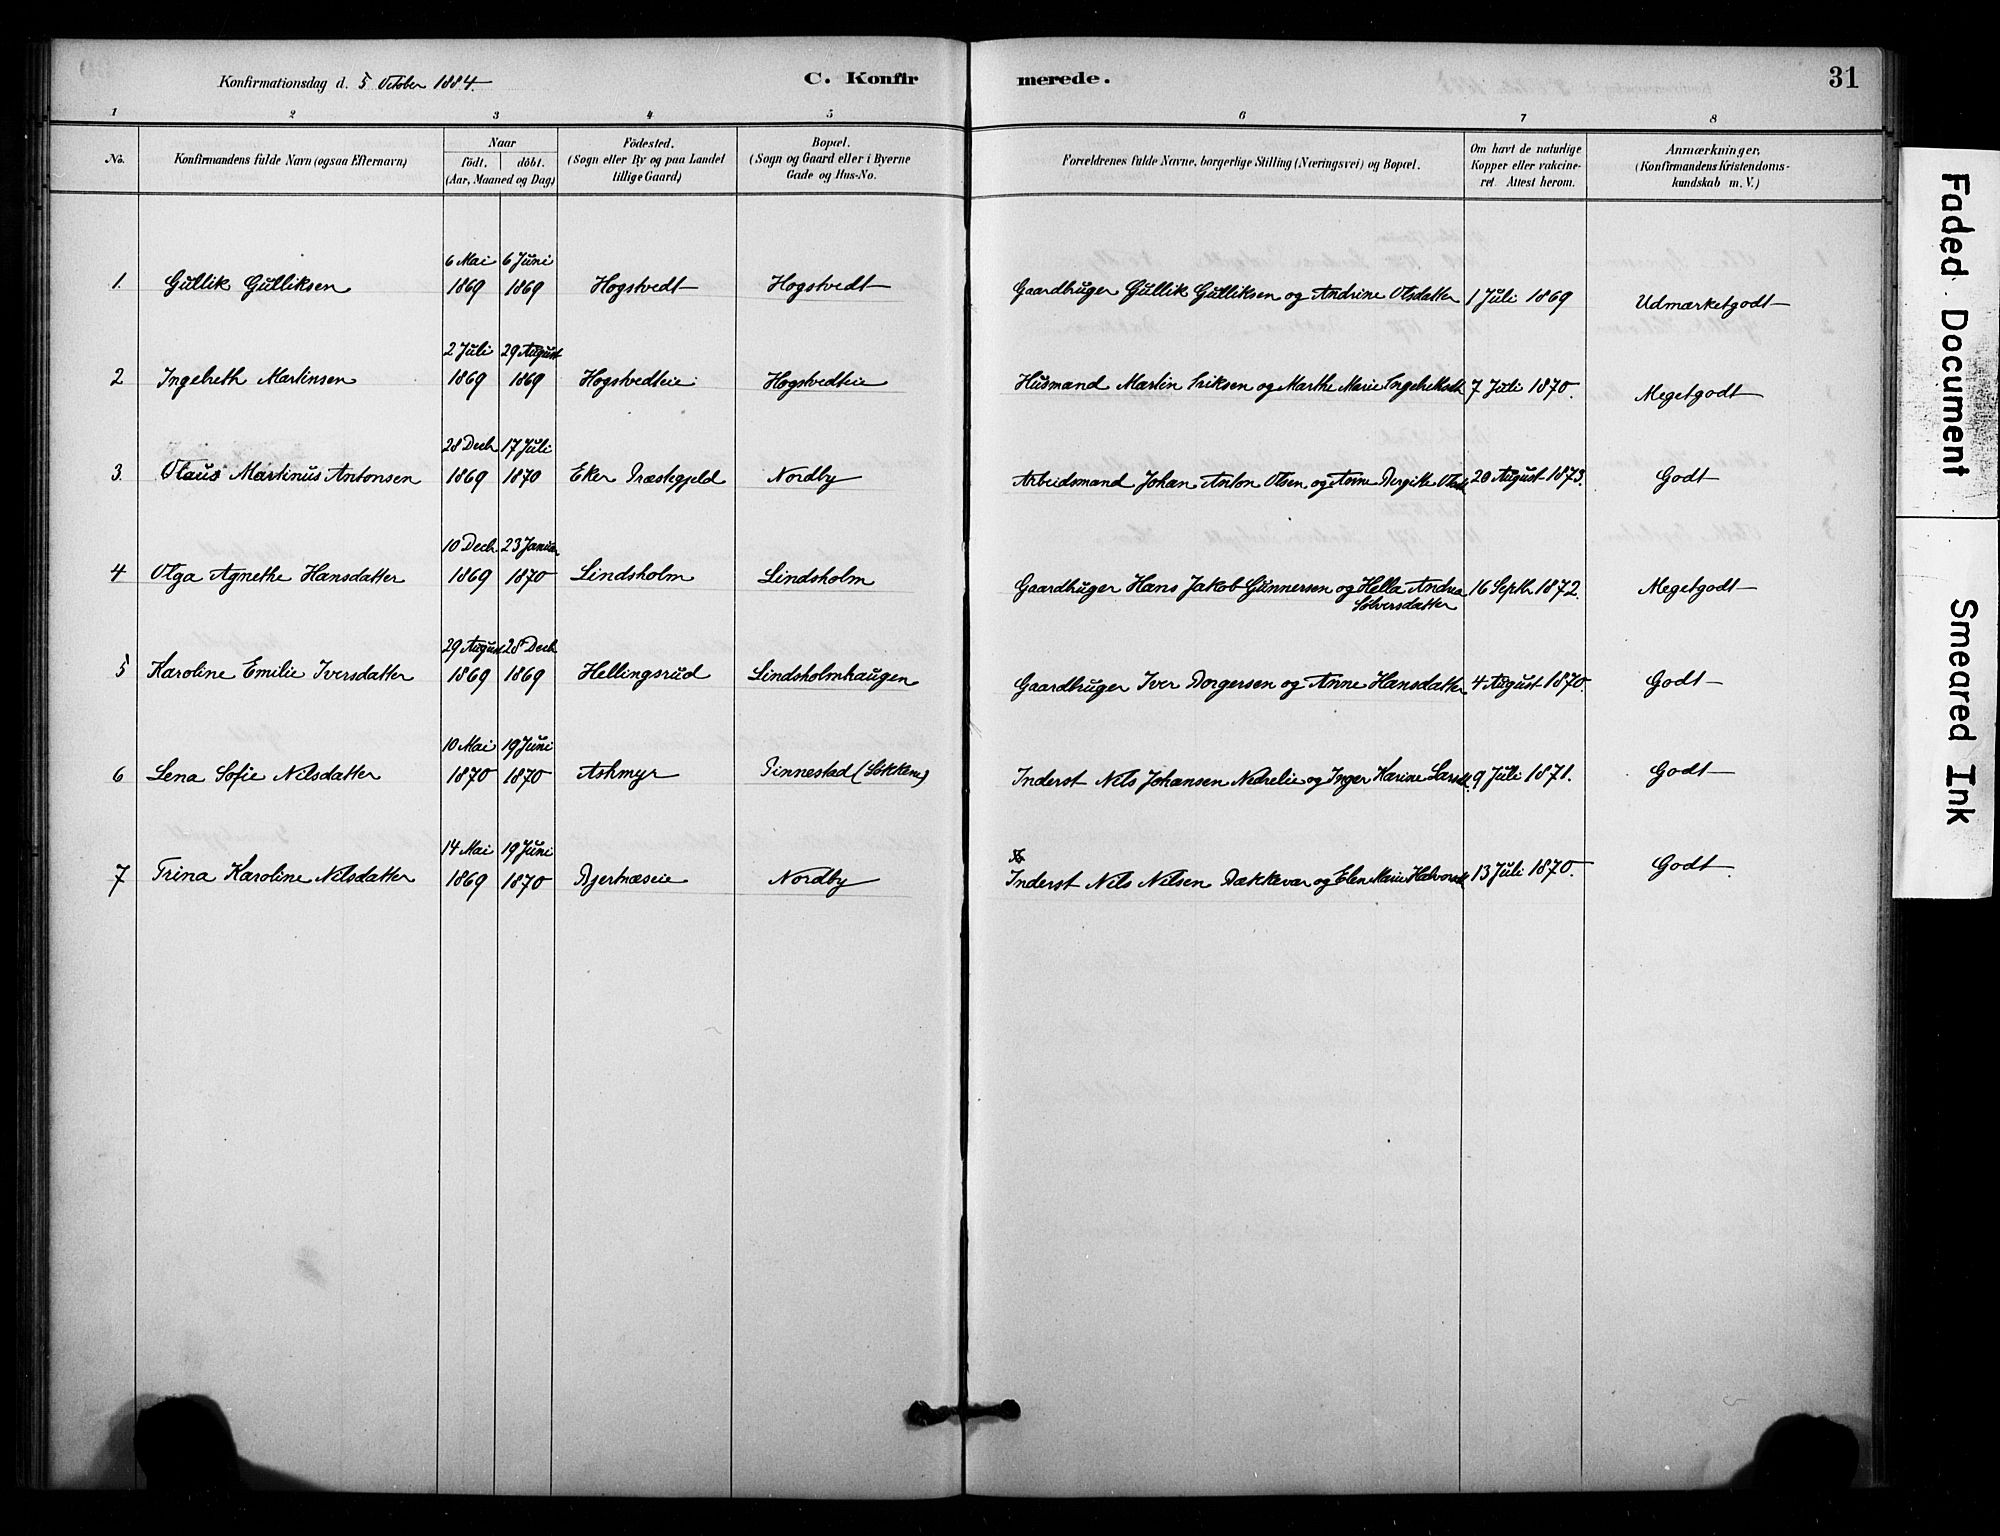 Konfirmationsdag d. 5 October 1884.
C. Konfirmerede.
31
1 2 3 4 5 6 7 8
No.
Konfirmandens fulde Navn (ogsaa Efternavn)
Naar
födt. döbt.
(Aar, Maaned og Dag)
Födested.
(Sogn eller By og paa Landet
tillige Gaard)
Bopæl.
(Sogn og Gaard eller i Byerne
Gade og Hus-No.
Forældrenes fulde Navne, borgerlige Stilling (Næringsvei) og Bopæl.
Om havt de naturlige
Kopper eller vakcine-
ret. Attest herom.
Anmærkninger,
(Konfirmandens Kristendoms-
kundskab m. V.)
6 Mai 6 Juni
1. Gullik Gulliksen 1869 1869 Hogstvedt Hogstvedt Gaardbruger Gullik Gulliksen og Andrine Olsdatter 1 Juli 1869 Udmærketgodt
2 Juli 29 August
2 Ingebreth Martinsen 1869 1869 Hogstvedteie Hogstvedteie Husmand Martin Eriksen og Marthe Marie Ingebrethsdt 7 Juli 1870. Megetgodt
28 Decb 17 Juli
3. Olaus Martinus Antonsen 1869 1870 Eker Præstegjeld Nordby Arbeidsmand Johan Anton Olsen og Anne Bergitte Olsdt 20 August 1873. Godt
10 Decb 23 Januar
4 Olga Agnethe Hansdatter 1869 1870 Lindsholm Lindsholm Gaardbruger Hans Jakob Gunnersen og Hella Andrea 16 Septb 1872. Megetgodt
Sølversdatter
29 August 28 Decb
5 Karoline Emilie Iversdatter 1869 1869 Hellingsrud Lindsholmhaugen Gaardbruger Iver Borgersen og Anne Hansdatter 4 August 1870. Godt
10 Mai 19 Juni
6 Lena Sofie Nilsdatter 1870 1870 Askmyr Pinnestad (Løkken) Inderst Nils Johansen Nedrelie og Inger Karine Larsdt. 9 Juli 1871. Godt
14 Mai 19 Juni
7 Trina Karoline Nilsdatter 1869 1870 Bjertnæseie Nordby Inderst Nils Nilsen Bækkevar og Elen Marie Halvorsdt 13 Juli 1870. Godt
Faded Document
Smeared Ink